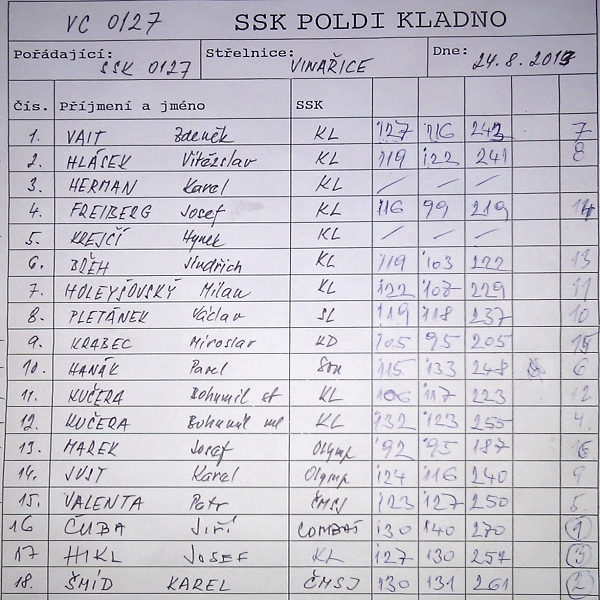 VC 0127 SSK POLDI KLADNO
Pořádající: SSK 0127 Střelnice: VINAŘICE Dne: 24.8.2013
Čís. Příjmení a jméno SSK
1. VAIT Zdeněk KL 127 116 243 7
2. HLÁSEK Vítězslav KL 119 122 241 8
3. HERMAN Karel KL / / /
4. FREIBERG Josef KL 116 99 219 14
5. KREJČÍ Hynek KL / / /
6. BŘEH Jindřich KL 119 103 222 13
7. HOLEYŠOVSKÝ Milan KL 122 107 229 11
8. PLETÁNEK Václav SL 119 118 237 10
9. KRABEC Miroslav KD 105 95 205 15
10. HANÁK Pavel 115 133 248 6
11. KUČERA Bohumil st KL 106 117 223 12
12. KUČERA Bohumil ml KL 132 123 255 4.
13. MAREK Josef Olymp 92 95 187 16
14. JUST Karel Olymp 124 116 240 9
15. VALENTA Petr ČMSJ 123 127 250 5.
16 ČUBA JIŘÍ COMBAT 130 140 270 1
17 HIKL JOSEF KL 127 130 257 3
18. ŠMÍD KAREL ČMSJ 130 131 261 2